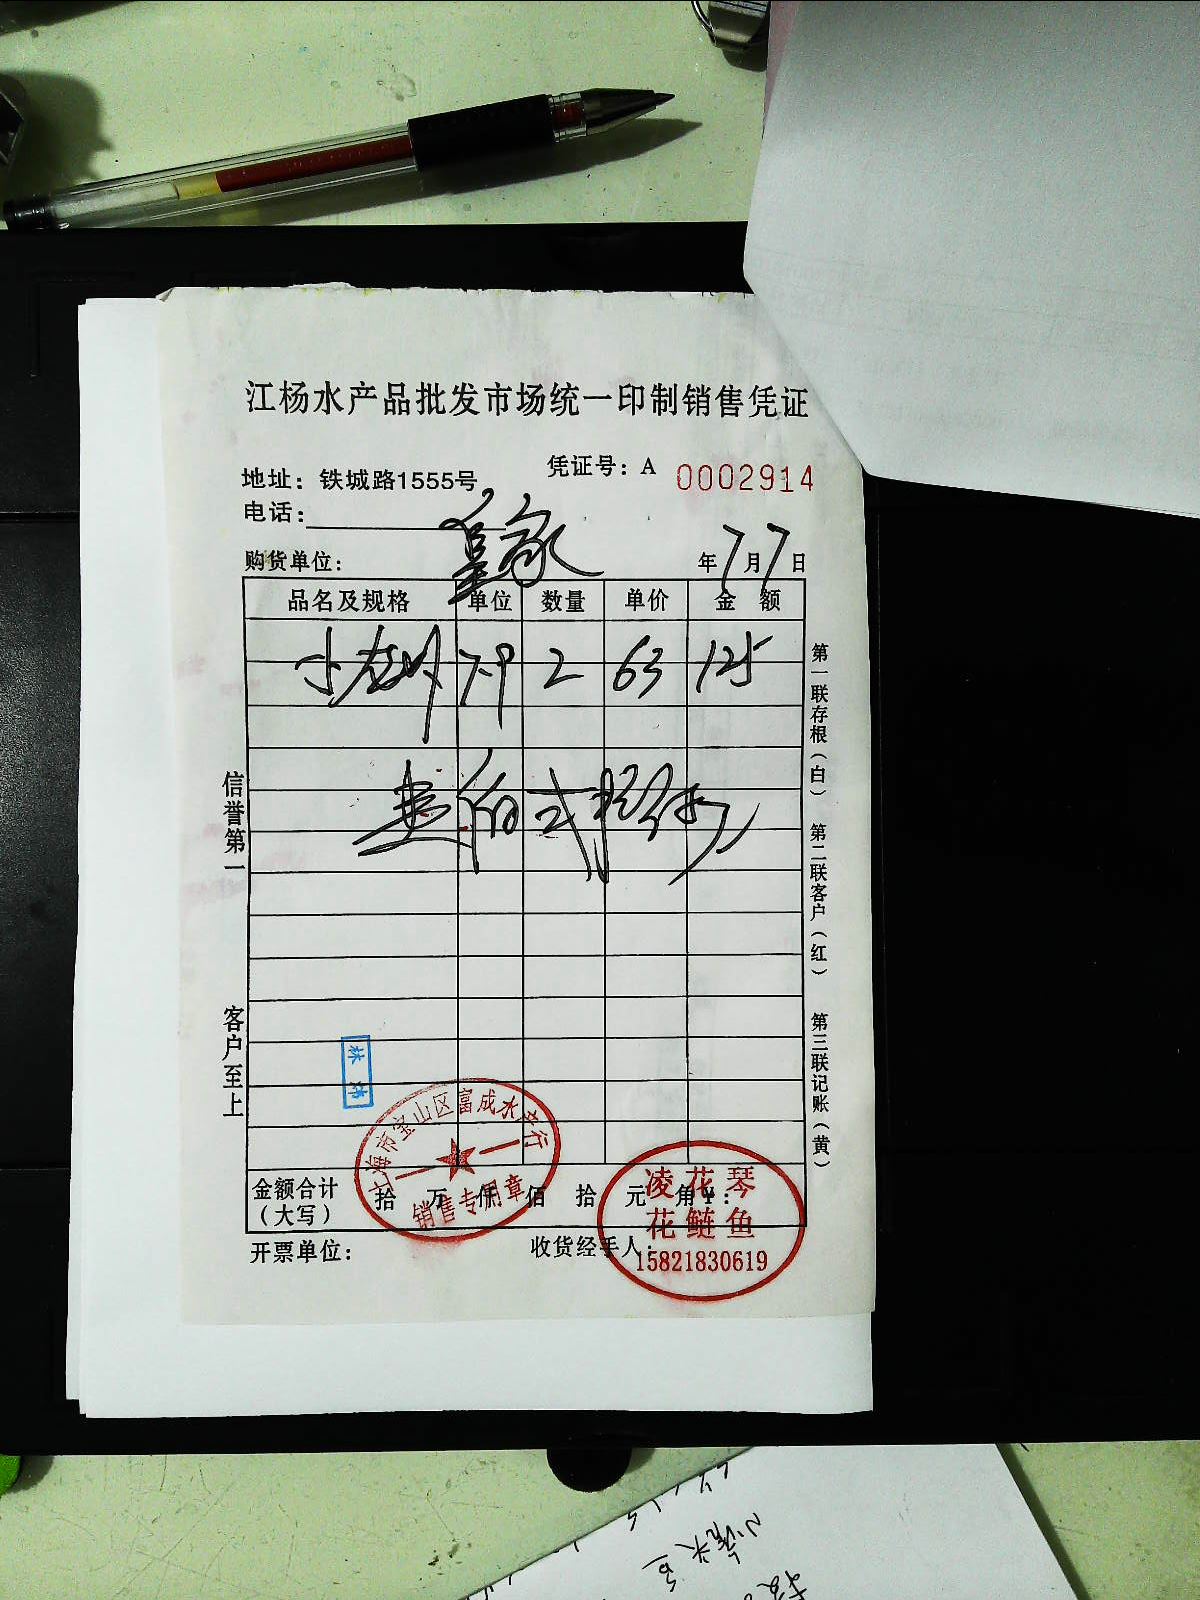 江杨水产品批发市场统一印制销售凭证
地址：铁城路1555号
凭证号：A 0002914
电话：
购货单位：
年7月7日
品名及规格 单位 数量 单价 金额
小龙虾 7-9 2 63 125
金额合计（大写） 拾 万 仟 佰 拾 元 角 ¥：
开票单位：
收货经手人：
信誉第一 客户至上
第一联存根（白） 第二联客户（红） 第三联记账（黄）
上海市宝山区富成水产行
销售专用章
凌花琴
花鲢鱼
15821830619